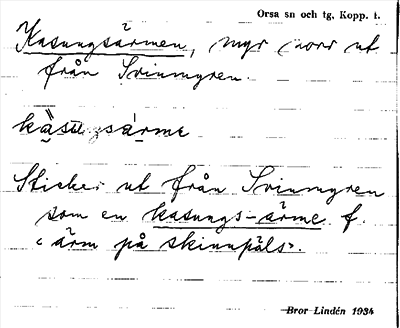 Orsa sn och tg, Kopp. l.
Kasungsärmen, myr norr ut
från Svinmyren.
Sticker ut från Svinmyren
som en kasungs-ärme f.
"ärm på skinnpäls".
Bror Lindén 1934